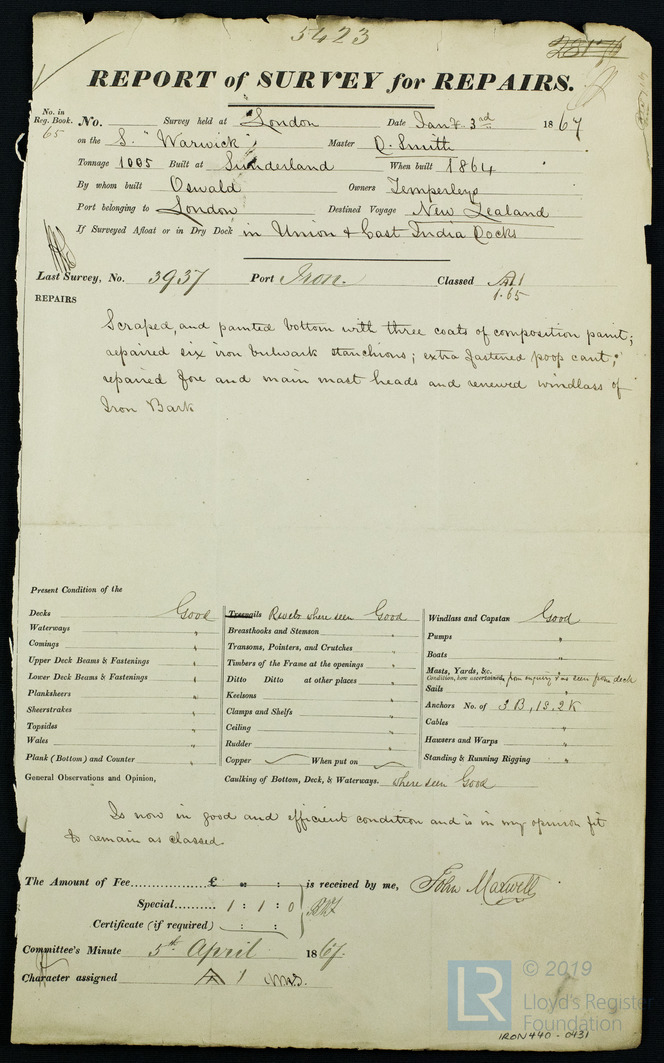 5423
REPORT of SURVEY for REPAIRS.
No. in Reg. Book. 65 No. Survey held at London Date Jany 3rd 1867
on the S. "Warwick" Master D. Smith
Tonnage 1005 Built at Sunderland When built 1864
By whom built Oswald Owners Temperleys
Port belonging to London Destined Voyage New Zealand
If Surveyed Afloat or in Dry Dock in Union & East India Docks
Last Survey, No. 3937 Port Iron. Classed A1
1.65
REPAIRS
Scraped, and painted bottom with three coats of composition paint;
repaired six iron bulwark stanchions; extra fastened poop cant;
repaired fore and main mast heads and renewed windlass of
Iron Bark
Present Condition of the
Decks Good Treenails Rivets where seen Good Windlass and Capstan Good
Waterways " Breasthooks and Stemson " Pumps "
Comings " Transoms, Pointers, and Crutches " Boats "
Upper Deck Beams & Fastenings " Timbers of the Frame at the openings " Masts, Yards, &c.
Condition, how ascertained, from enquiry & as seen from deck
Lower Deck Beams & Fastenings " Ditto Ditto at other places " Sails "
Planksheers " Keelsons " Anchors No. of 3B, 1S, 2K
Sheerstrakes " Clamps and Shelfs " Cables "
Topsides " Ceiling " Hawsers and Warps "
Wales " Rudder " Standing & Running Rigging "
Plank (Bottom) and Counter " Copper When put on
General Observations and Opinion, Caulking of Bottom, Deck, & Waterways. where seen Good
Is now in good and efficient condition and is in my opinion fit
to remain as classed
The Amount of Fee............... £ " : : is received by me, John Maxwell
Special.......... 1 : 1 : 0
Certificate (if required) : :
Committee's Minute 5th April 1867.
Character assigned A 1
© 2019
LR Lloyd's Register
Foundation
IRON 440 - 0431